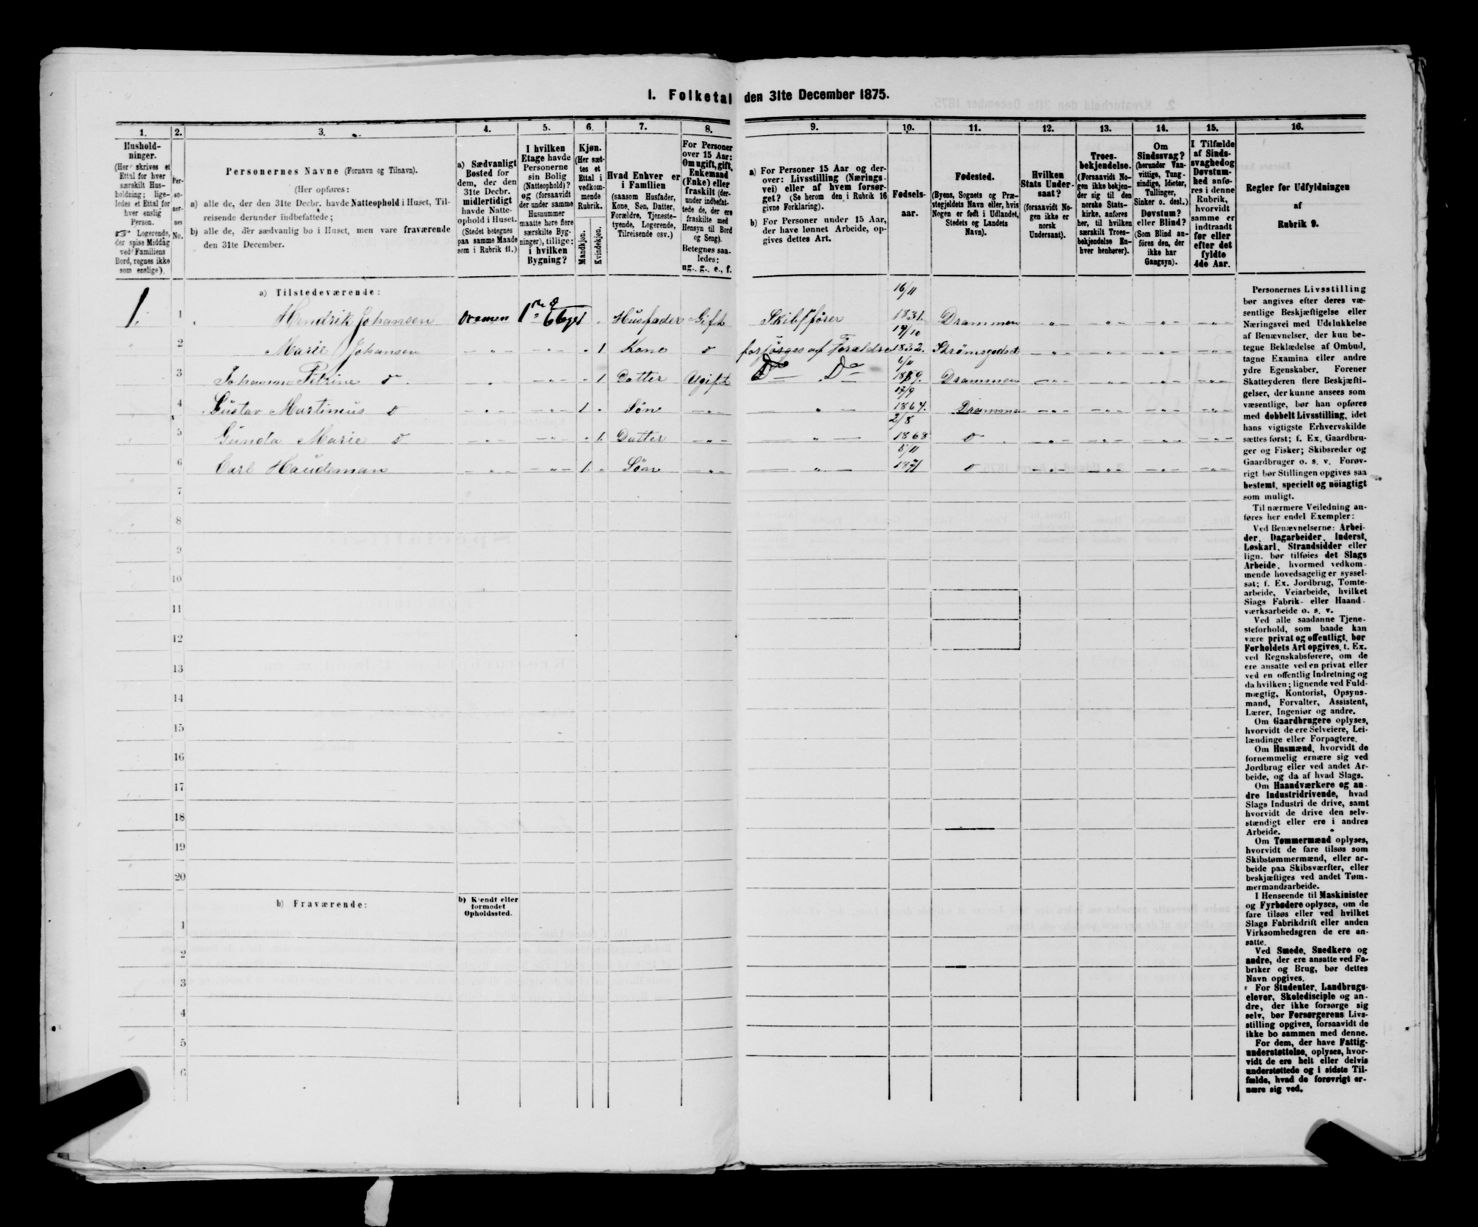 I. Folketal den 31te December 1875.
1. 2. 3. 4. 5. 6. 7. 8. 9. 10. 11. 12. 13. 14. 15. 16.
Hushold-
ninger.
(Her skrives et
Ettal for hver
særskilt Hus-
holdning; lige-
ledes et Ettal for
hver enslig
Person.
Logerende,
der spise Middag
ved Familiens
Bord, regnes ikke
som enslige).
Per-
so-
ner-
nes
No.
Personernes Navne (Fornavn og Tilnavn).
(Her opføres:
a) alle de, der den 31te Decbr. havde Natteophold i Huset, Til-
reisende derunder indbefattede;
b) alle de, der sædvanlig bo i Huset, men vare fraværende
den 31te December.
a) Sædvanligt
Bosted for
dem, der den
31te Decbr.
midlertidigt
havde Natte-
ophold i Huset.
(Stedet betegnes
paa samme Maade
som i Rubrik 11.)
I hvilken
Etage havde
Personerne
sin Bolig
(Natteophold)?
og (forsaavidt
der under samme
Husnummer
maatte høre flere
særskilte Byg-
ninger), tillige:
i hvilken
Bygning?
Kjøn.
(Her sæt-
tes et
Ettal i
vedkom-
mende
Rubrik.
Mandkjøn.
Kvindekjøn.
Hvad Enhver er
i Familien
(saasom Husfader,
Kone, Søn, Datter,
Forældre, Tjeneste-
tyende, Logerende,
Tilreisende osv.)
For Personer
over 15 Aar:
Om ugift, gift,
Enkemand
(Enke) eller
fraskilt (der-
under indbefat-
tede de, der ere
fraskilte med
Hensyn til Bord
og Seng).
Betegnes saa-
ledes:
ug., g., e., f.
a) For Personer 15 Aar og der-
over: Livsstilling (Nærings-
vei) eller af hvem forsør-
get? (Se herom den i Rubrik 16
givne Forklaring).
b) For Personer under 15 Aar,
der have lønnet Arbeide, op-
gives dettes Art.
Fødsels-
aar.
Fødested.
(Byens, Sognets og Præ-
stegjeldets Navn eller, hvis
Nogen er født i Udlandet,
Stedets og Landets
Navn).
Hvilken
Stats Under-
saat?
(forsaavidt No-
gen ikke er
norsk
Undersaat).
Troes-
bekjendelse.
(Forsaavidt No-
gen ikke bekjen-
der sig til den
norske Stats-
kirke, anføres
her, til hvilken
særskilt Troes-
bekjendelse En-
hver henhører).
Om
Sindssvag?
(herunder Van-
vittige, Tung-
sindige, Idioter,
Tullinger,
Sinker o. desl.)
Døvstum?
eller Blind?
(Som Blind an-
føres den, der
ikke har
Gangsyn).
I Tilfælde
af Sinds-
svaghed og
Døvstum-
hed anfø-
res i denne
Rubrik,
hvorvidt
samme er
indtraadt
før eller
efter det
fyldte
4de Aar.
Regler for Udfyldningen
af
Rubrik 9.
a) Tilstedeværende:
1. 1 Hendrik Johansen Dramen 1 Husfader Gift Skibsfører 16/11 1831. Drammen
2 Marie Johansen 1 Kone d forsørges af 19/10 1832. Strømsgodset
3 Johanna Petrine d 1 Datter Ugift Do Do 6/11 Drammen
4 Gustav Martinius d 1 Søn 1867. Drammen
5 Gunda Marie d 1 Datter 2/8 1868 d
6 Carl 1 Søn 5/11 1871 d
7
8
9
10
11
12
13
14
15
16
17
18
19
20
b) Fraværende:
b) Kjendt eller
formodet
Opholdssted.
1
2
3
4
5
6
Personernes Livsstilling
bør angives efter deres væ-
sentlige Beskjæftigelse eller
Næringsvei med Udelukkelse
af Benævnelser, der kun be-
tegne Beklædelse af Ombud,
tagne Examina eller andre
ydre Egenskaber. Forener
Skatteyderen flere Beskjæfti-
gelser, der kunne ansees som
væsentlige, bør han opføres
med dobbelt Livsstilling, idet
hans vigtigste Erhvervskilde
sættes først; f. Ex. Gaardbru-
ger og Fisker; Skibsreder og
Gaardbruger o. s. v. Forøv-
rigt bør Stillingen opgives saa
bestemt, specielt og nöiagtigt
som muligt.
Til nærmere Veiledning an-
føres her endel Exempler:
Ved Benævnelserne: Arbei-
der, Dagarbeider, Inderst,
Løskarl, Strandsidder eller
lign. bør tilføies det Slags
Arbeide, hvormed vedkom-
mende hovedsagelig er syssel-
sat; f. Ex. Jordbrug, Tomte-
arbeide, Veiarbeide, hvilket
Slags Fabrik- eller Haand-
værksarbeide o. s. v.
Ved alle saadanne Tjene-
steforhold, som baade kan
være privat og offentligt, bør
Forholdets Art opgives, t. Ex.
ved Regnskabsførere, om de
ere ansatte ved en privat eller
ved en offentlig Indretning og
da hvilken; lignende ved Fuld-
mægtig, Kontorist, Opsyns-
mand, Forvalter, Assistent,
Lærer, Ingeniør og andre.
Om Gaardbrugere oplyses,
hvorvidt de ere Selveiere, Lei-
lændinge eller Forpagtere.
Om Husmænd, hvorvidt de
fornemmelig ernære sig ved
Jordbrug eller ved andet Ar-
beide, og da af hvad Slags.
Om Haandværkere og an-
dre Industridrivende, hvad
Slags Industri de drive, samt
hvorvidt de drive den selv-
stændigt eller ere i andres
Arbeide.
Om Tømmermænd oplyses,
hvorvidt de fare tilsøs som
Skibstømmermænd, eller ar-
beide paa Skibsværfter, eller
beskjæftiges ved andet Tøm-
mermandsarbeide.
I Henseende til Maskinister
og Fyrbødere oplyses, om de
fare tilsøs eller ved hvilket
Slags Fabrikdrift eller anden
Virksomhedsgren de ere an-
satte.
Ved Smede, Snedkere og
andre, der ere ansatte ved Fa-
briker og Brug, bør dettes
Navn opgives.
For Studenter, Landbrugs-
elever, Skoledisciple og an-
dre, der ikke forsørge sig
selv, bør Forsørgerens Livs-
stilling opgives, forsaavidt de
ikke bo sammen med denne.
For dem, der have Fattig-
understøttelse, oplyses, hvor-
vidt de ere helt eller delvis
understøttede og i sidste Til-
fælde, hvad de forøvrigt er-
nære sig ved.